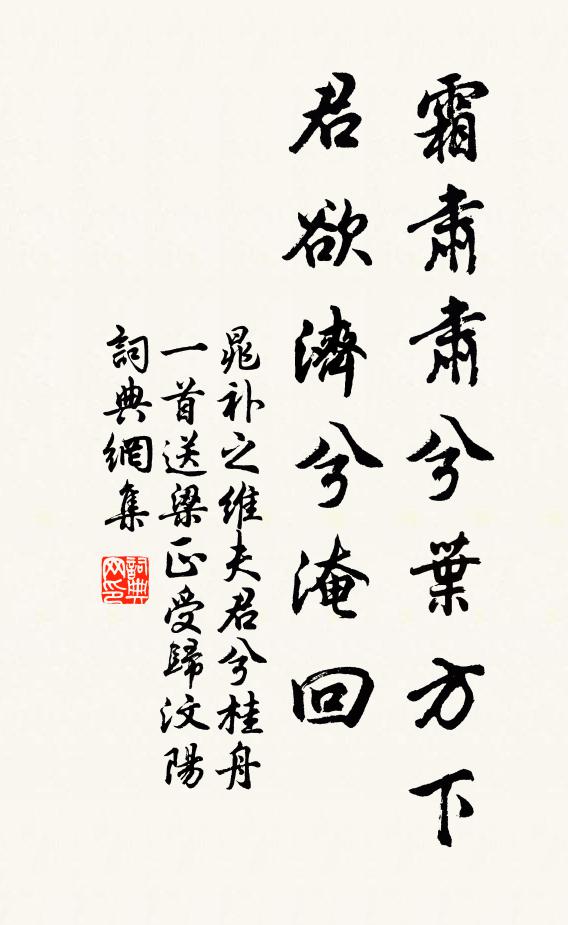 霜肅肅兮葉方下
君欲濟兮淹回
晁补之維夫君兮桂舟
一首送梁正受歸汶陽
詞典網集
詞典
网印